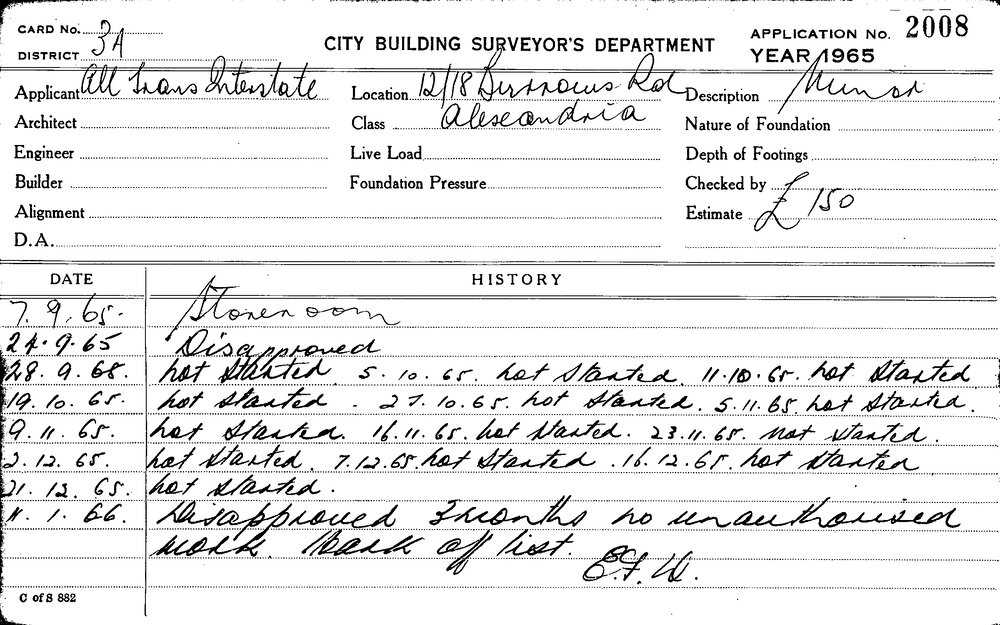 CARD No. 3A
DISTRICT
CITY BUILDING SURVEYOR'S DEPARTMENT
APPLICATION No. 2008
YEAR 1965
Applicant All Trans Interstate Location 12/18 Burrows Rd Description Minor
Architect Class Alexandria Nature of Foundation
Engineer Live Load Depth of Footings
Builder Foundation Pressure Checked by
Alignment Estimate £150
D.A.
DATE HISTORY
7.9.65. Storeroom
24.9.65 Disapproved
28.9.65. not started 5.10.65. not started. 11.10.65. not started
19.10.65. not started. 27.10.65. not started. 5.11.65 not started.
9.11.65. not started. 16.11.65. not started. 23.11.65. not started.
2.12.65. not started. 7.12.65. not started. 16.12.65. not started
21.12.65. not started.
11.1.66. Disapproved 3 months no unauthorised
work. Mark off list.
E.F.W.
C of S 882